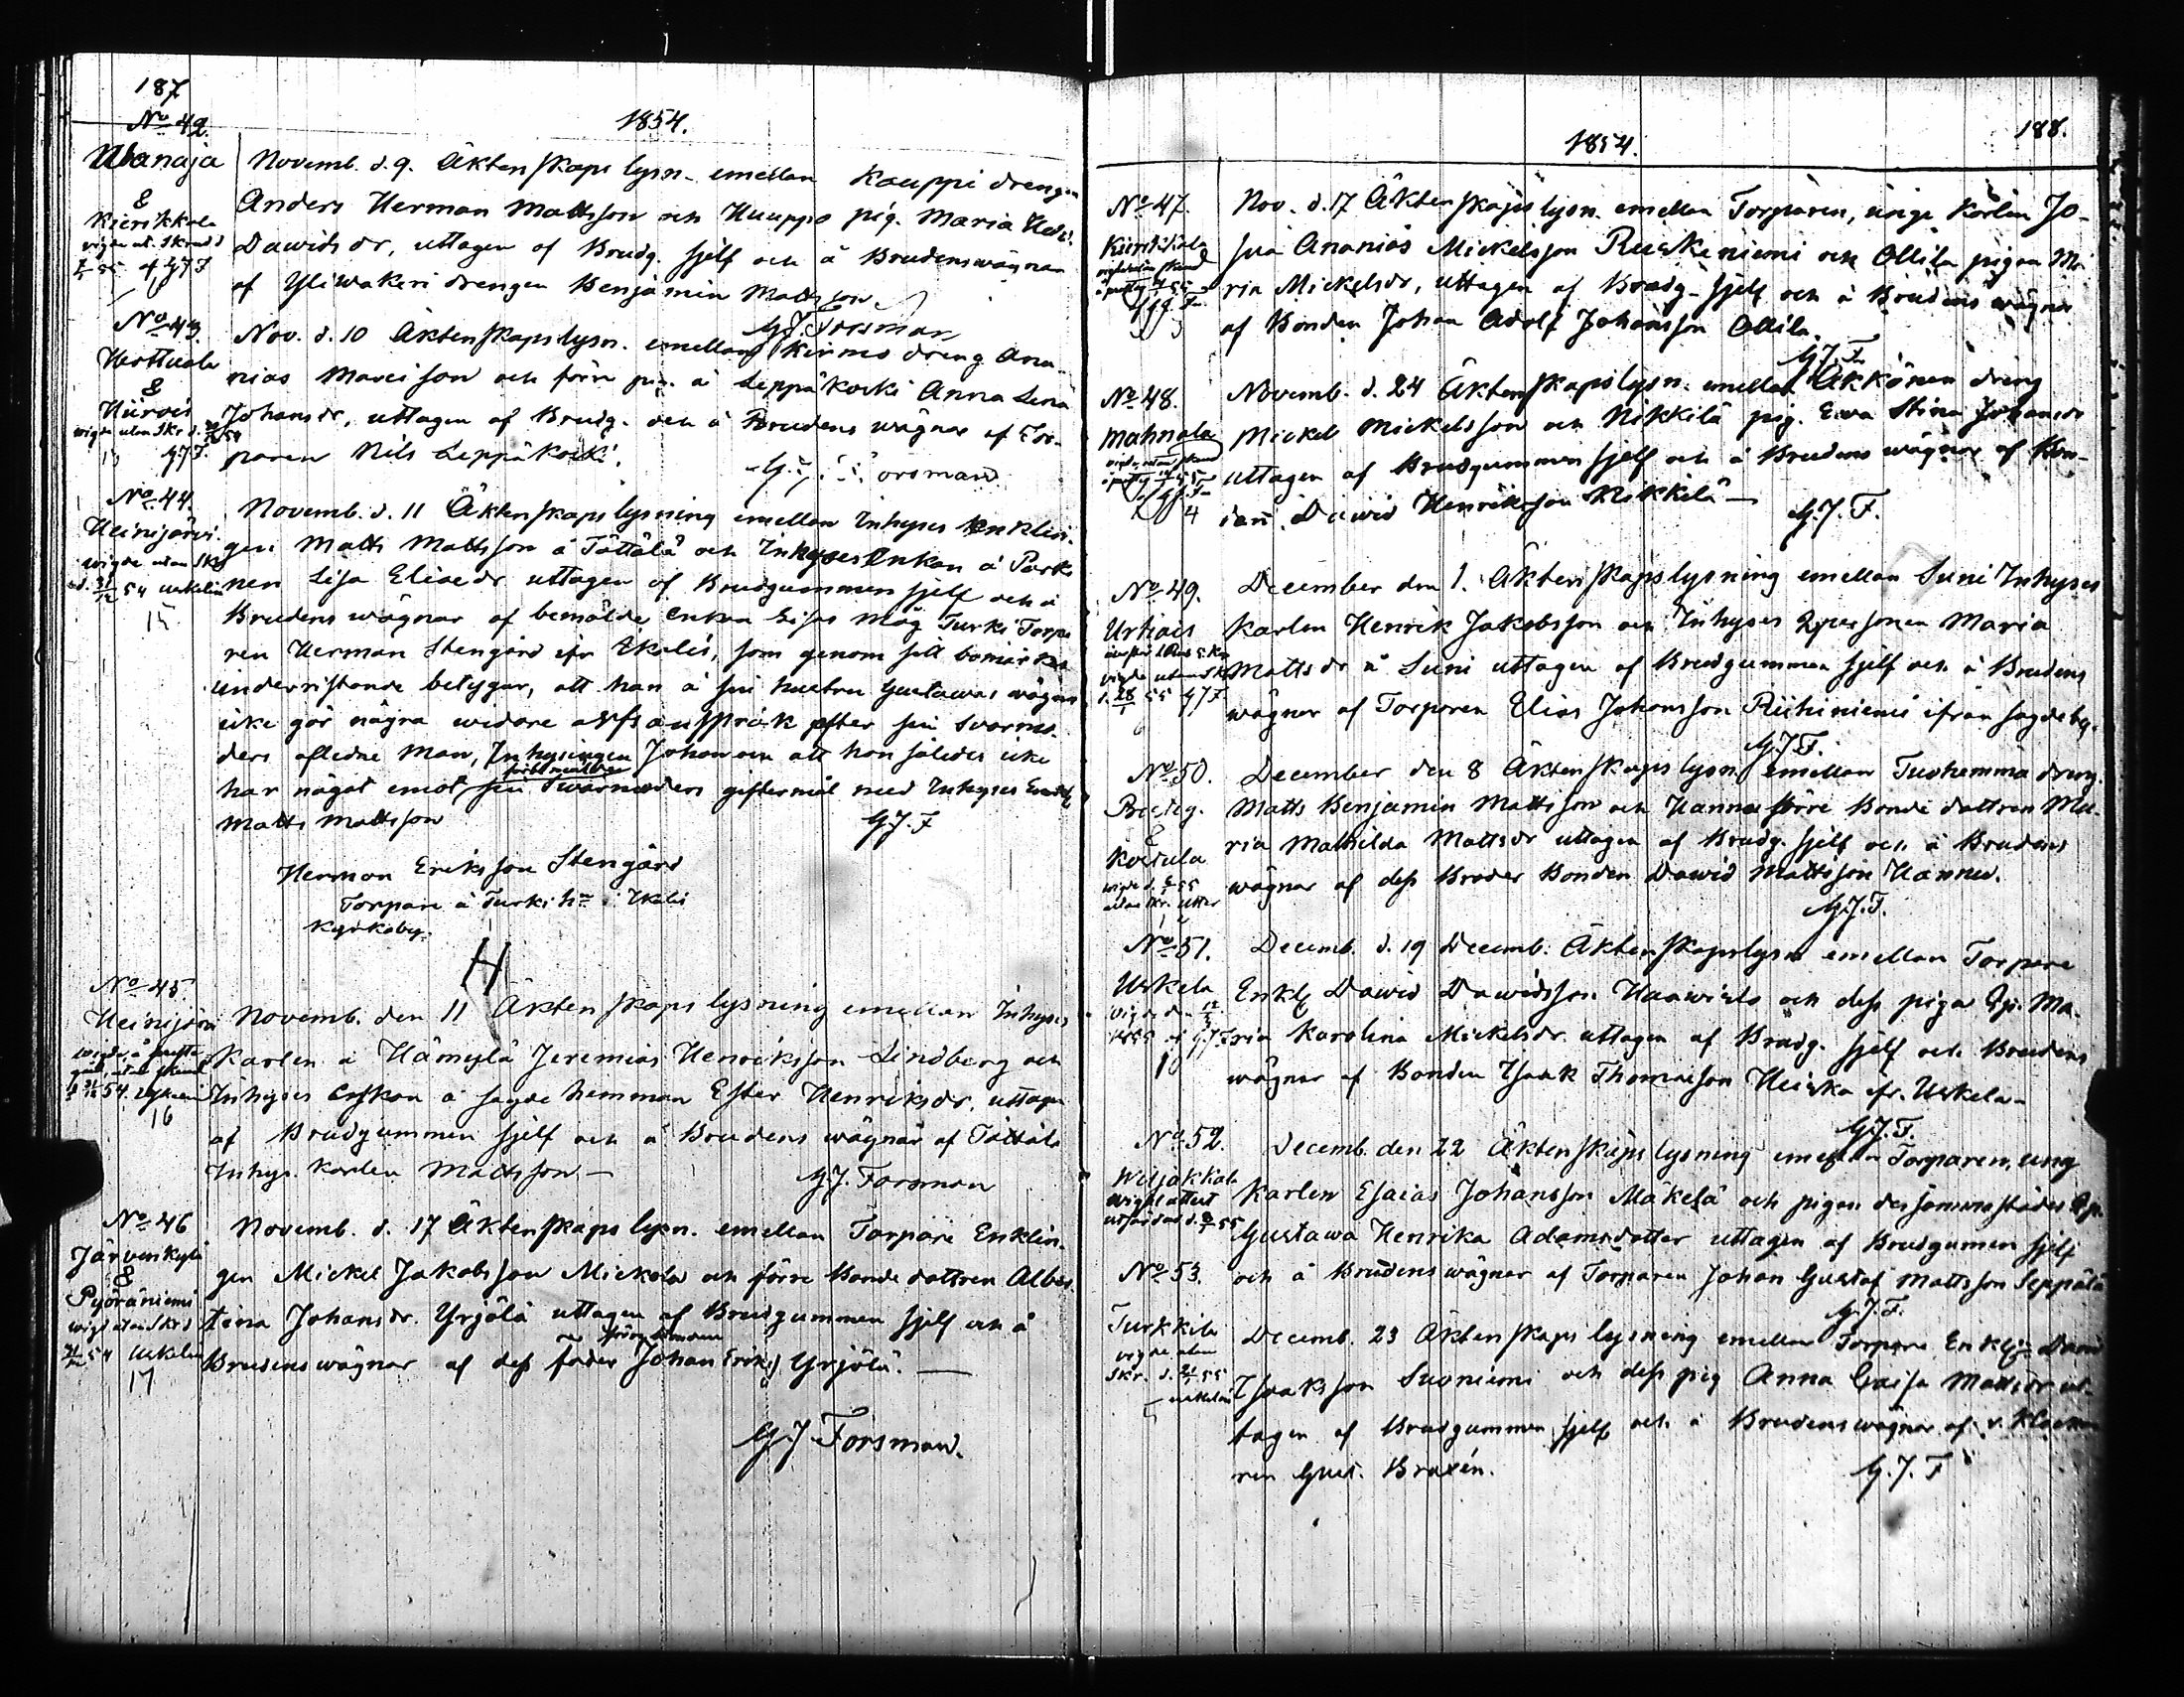 187
1854.
No 42.
Wanaja
&
Kierikkala
Novemb. d. 9. Äktenskaps lysn. emellan Kauppi drengen
Anders Herman Mattsson och Huuppo pig. Maria Hed.
Dawidsdr, uttagen af Brudg. sjelf och å Brudens wägnar
af Yliwakeri drengen Benjamin Mattsson.
G.J. Forsman
No 43.
Hottuala
&
Hiirois
Nov. d. 10 Äktenskapslysn. emellan Kirmo dreng Ana-
nias Mariison och förre pig. å Leppäkoski Anna Lena
Johansdr, uttagen af Brudg. och å Brudens wägnar af Tor-
paren Nils Leppäkoski.
G.J. Forsman
No 44.
Heinijärvi.
wigde utan Skr
d. 31/12 54 Uskelin
15
Novemb. d. 11 Äktenskaps lysning emellan Inhyses Enklin-
gen Matts Mattsson å Töttölä och Inhyses Enkan å Park
nen Lisa Eliaedr uttagen af Brudgummen sjelf och å
Brudens wägnar af bemälde Enkan Lisas måg Turki Torpa
ren Herman Stengård ifr Ikalis, som genom sitt bomärke
underristande betygar, att han å sin hustru Gustawas wägnar
icke gör några widare arfsanspråk efter sin Svärmo-
ders aflidne Man, Inhysingen Johan och att han således icke
har något emot sin Swärmoders giftermål med Inhyses Enkl
Matts Mattsson
G.J.F
Herman Eriksson Stengård
Torpare å Turki hn i Ikalis
Kyrkoby.
H
No 45.
Heinijärvi
16
Novemb. den 11 Äktenskaps lysning emellan Inhyses
Karlen å Hämylä Jeremias Henriksson Lindberg och
Inhyses Enkan å sagde hemman Ester Henriksdr, uttagen
af Brudgummen sjelf och å Brudens wägnar af Töttölä
Inhys. karlen Mattsson –
G.J. Forsman
No 46
Järvenkylä
&
Pyöräniemi
17
Novemb. d. 17 Äktenskaps lysn. emellan Torpare Enklin-
gen Mickel Jakobsson Mickola och förre Bonde dottren Alber-
tina Johansdr. Yrjölä uttagen af Brudgummen sjelf och å
Brudens wägnar af dess fader Johan Eriks Yrjölä. —
G.J. Forsman.
1854.
188.
No 47.
Nov. d. 17 Äktenskaps lysn. emellan Torparen, unge Karlen Jo-
sua Ananias Mickelsson Ruskeniemi och Ollila pigan Ma-
ria Mickelsdr, uttagen af Brudg. sjelf och å Brudens wägnar
af Bonden Johan Adolf Johansson Ollila.
G.J.F.
No 48.
Mahnala
4
Novemb. d. 24 Äktenskapslysn. emellan Äkkönen dreng
Mickel Mickelsson och Nikkilä pig. Ewa Stina Johansdr
uttagen af Brudgummen sjelf och å Brudens wägnar af Bon-
den. Dawid Henriksson Nikkilä –
G.J.F.
No 49.
Urhais
6
December den 1. Äktenskapslysning emellan Suni Inhyses
Karlen Henrik Jakobsson och Inhyses Qpersonen Maria
Mattsdr å Suni uttagen af Brudgummen sjelf och å Brudens
wägnar af Torparen Elias Johansson Riihiniemi ifrån sagde by.
G.J.F.
No 50.
&
December den 8 Äktenskaps lysn. emellan Tuohemma dreng
Matts Benjamin Mattsson och Hannu förre Bonde dottren Ma-
ria Mathilda Mattsdr uttagen af Brudg. sjelf och å Brudens
wägnar af dess Broder Bonden Dawid Mattsson Hannu.
G.J.F.
No 51.
Uskela
Decemb. d. 19 Decemb. Äktenskapslysn emellan Torpare
Enkl Dawid Dawidsson Haawisto och dess piga Qp. Ma-
ria Karolina Mickelsdr. uttagen af Brudg. sjelf och Brudens
wägnar af Bonden Isaak Thomasson Heiska ifr. Uskela –
G.J.F.
No 52.
Wiljakkala
Decemb. den 22 Äktenskaps lysning emellan Torparen, ung
Karlen Esaias Johansson Mäkelä och pigan dersammastädes Qp.
Gustawa Henrika Adamsdotter uttagen af Brudgumen sjelf
och å Brudens wägnar af Torparen Johan Gustaf Mattsson Seppälä
G.J.F.
No 53.
Turkkila
Decemb. 23 Äktenskaps lysning emellan Torpare Enkl:n David
Isaaksson Suoniemi och dess pig Anna Caisa Mattsdr ut-
tagen af Brudgummen sjelf och å Brudens wägnar af v. Klocka-
ren Gust. Braxén.
G.J.F